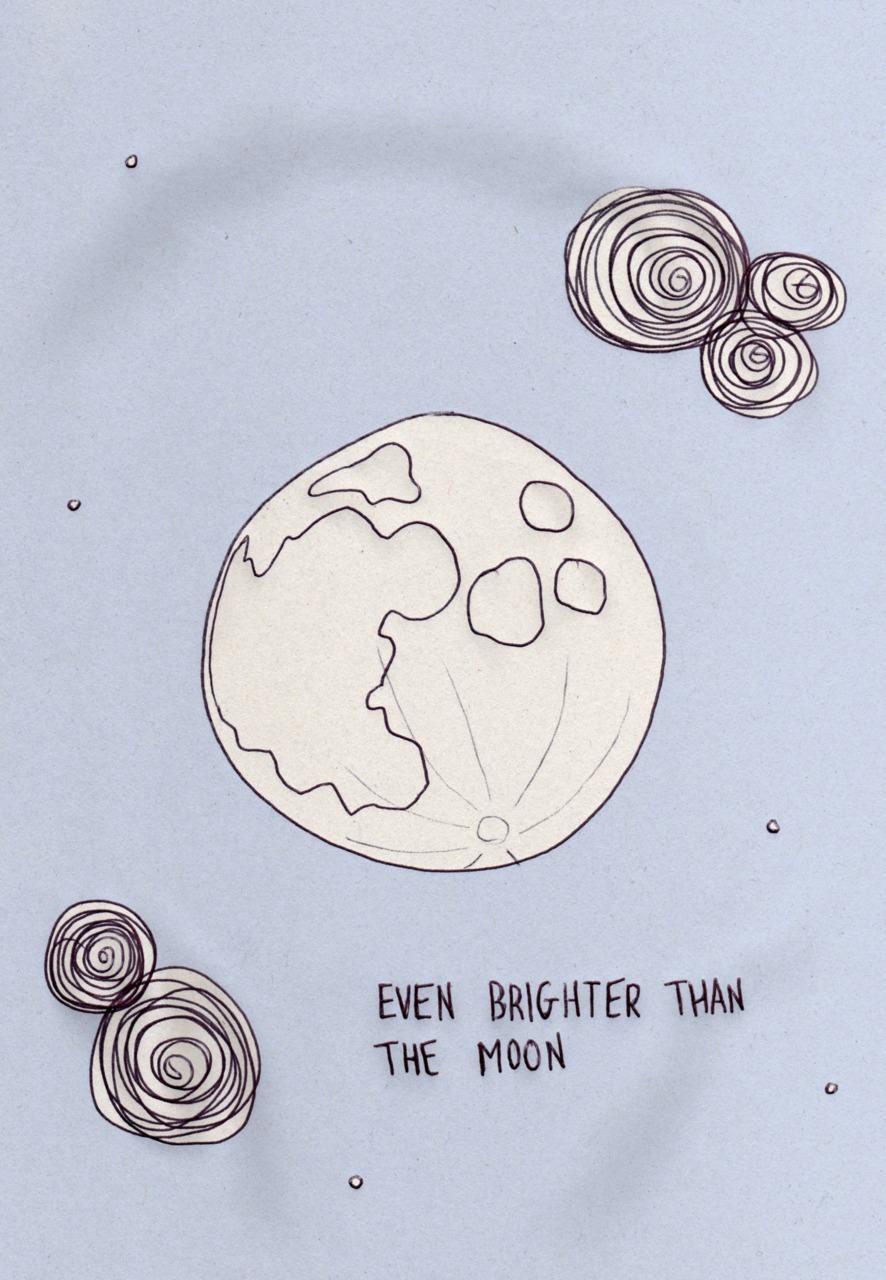 EVEN BRIGHTER THAN
THE MOON